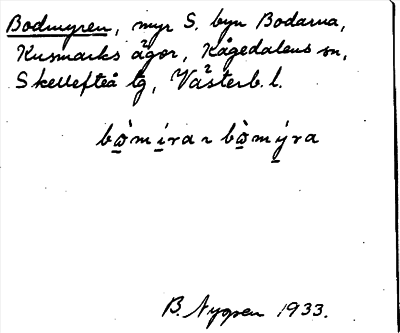 Bodmyren, myr S. byn Bodarna,
Kusmarks ägor, Kågedalens sn,
Skellefteå tg, Västerb. l.
bὼ̲mi̲ra ~ bὼ̲mý̲ra
B. Nygren 1933.